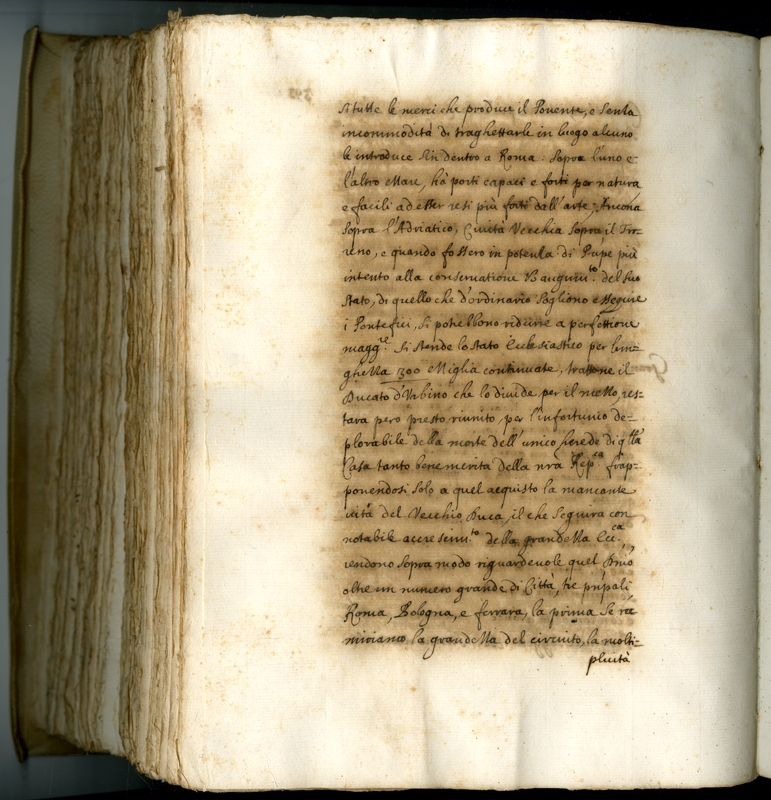 si tutte le merci che produce il Ponente, e senza
incommodità di traghettarle in luogo alcuno
le introduce sin dentro a Roma: sopra l'uno e
l'altro Mare, hà porti capaci e forti per natura
e facili ad esser resi più forti dall'arte, Ancona
sopra l'Adriatico, Cività Vecchia sopra il Tir-
reno, e quando fossero in potenza di Prīpe più
intento alla conservatione et augum.to del suo
stato, di quello che d'ordinario sogliono essere
i Pontefici, si potrebbono ridurre a perfettione
magg.re Si stende lo stato Ecclesiastico per lun-
ghezza 300 Miglia continuate, trattone il
Ducato d'Urbino che lo divide, per il mezzo, res-
tarà però presto riunito, per l'infortunio de-
plorabile della morte dell'unico herede di q.lla
Casa tanto benemerita della nra Rep.ca frap-
ponendosi solo a quel acquisto la mancante
vità del Vecchio Duca, il che seguirà con
notabile accrescim.to della grandezza Ecc.ca
rendono sopra modo riguardevole quel Dnio
oltre un numero grande di Città, tre prīpali
Roma, Bologna, e ferrara, la prima se rē
miriamo la grandezza del circuito, la molti-
plicità